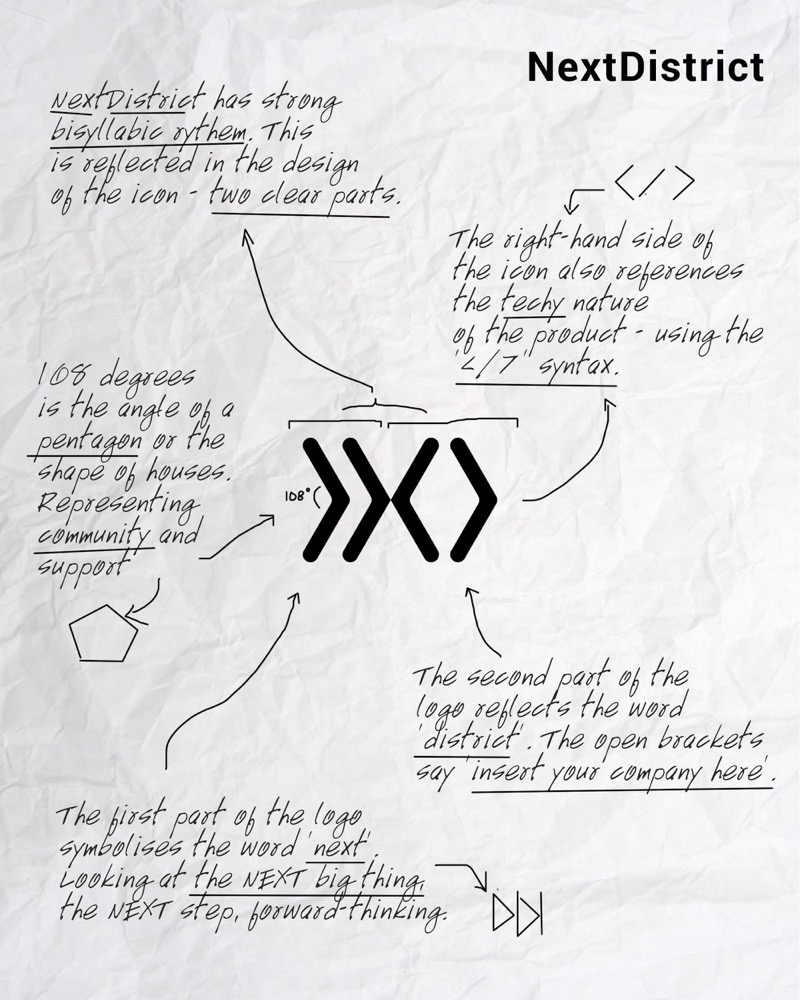 NextDistrict
NextDistrict has strong
bisyllabic rythem. This
is reflected in the design
of the icon - two clear parts.
</>
The right-hand side of
the icon also references
the techy nature
of the product - using the
'</7' syntax.
108 degrees
is the angle of a
pentagon or the
shape of houses.
Representing
community and
support
108°
The second part of the
logo reflects the word
'district'. The open brackets
say 'insert your company here'.
The first part of the logo
symbolises the word 'next'.
Looking at the NEXT big thing,
the NEXT step, forward-thinking.